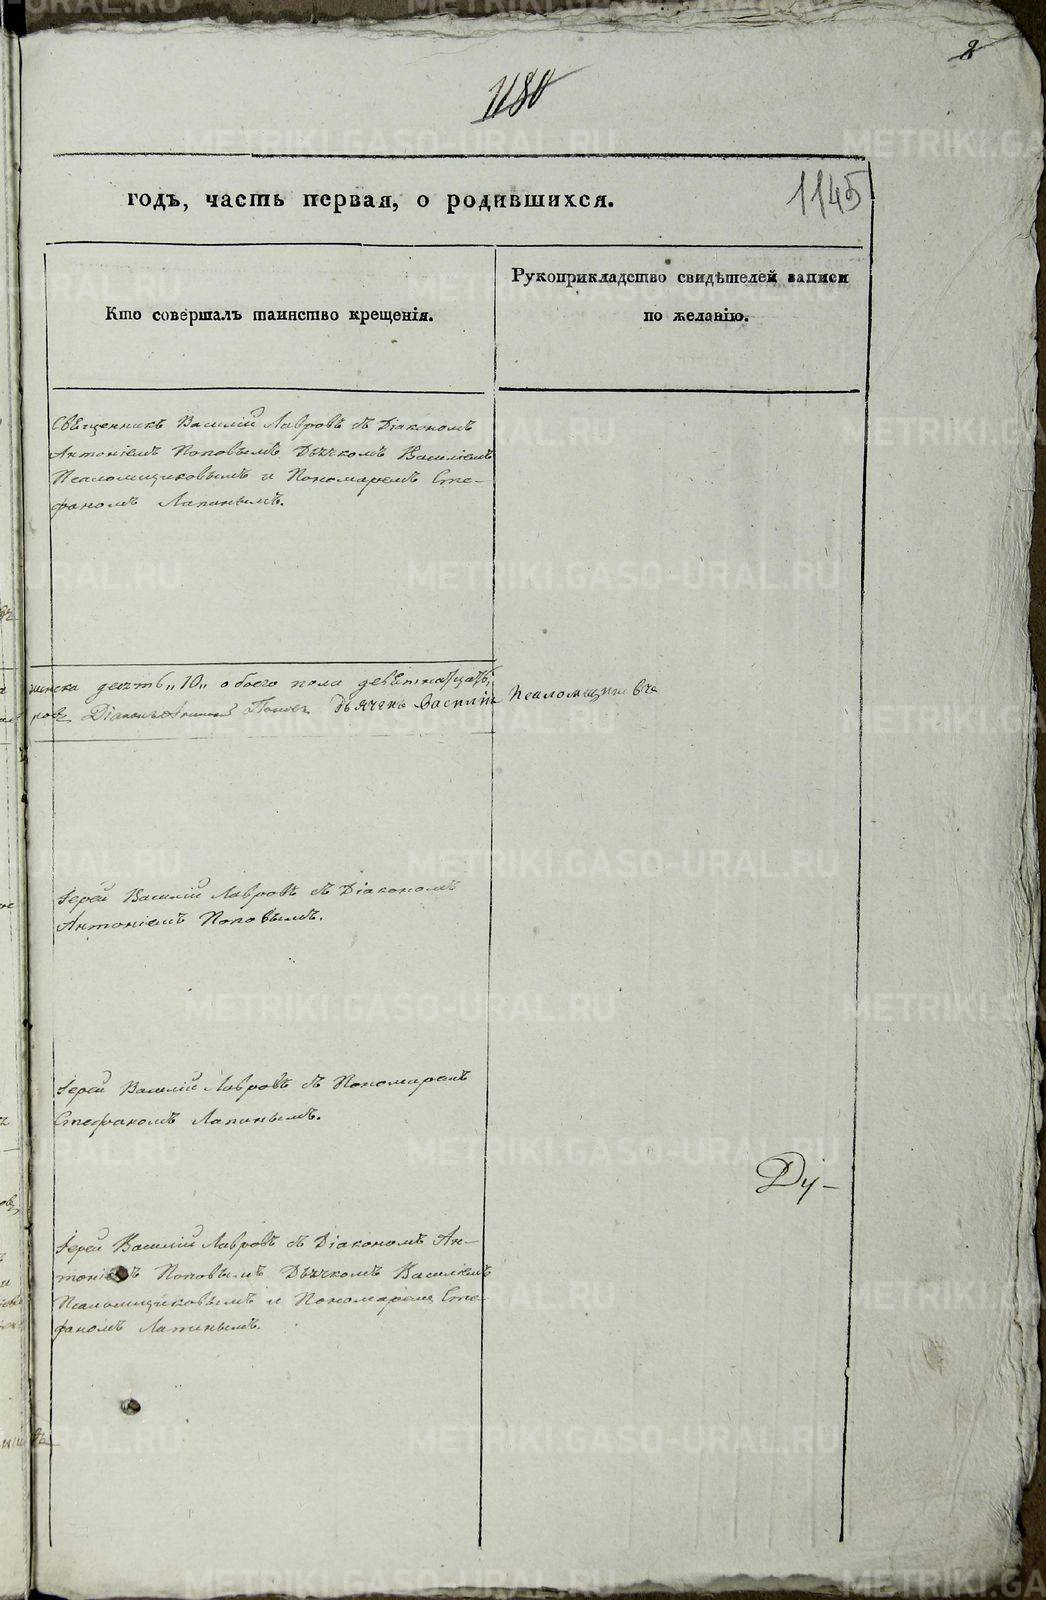 2
1180
1145
годъ, часть первая, о родившихся.
Кто совершалъ таинство крещенія.
Рукоприкладство свидѣтелей записи
по желанію.
Священникъ Василій Лавровъ съ Діакономъ
Антоніемъ Поповымъ Дьячкомъ Василіемъ
Псаломщиковымъ и Пономаремъ Сте-
фаномъ Лапинымъ.
женска десять „10„ обоего пола девѣтнатцать
Діаконъ Антоній Поповъ Дьячекъ Василій Псаломщиковъ
Іерей Василій Лавровъ съ Діакономъ
Антоніемъ Поповымъ.
Іерей Василій Лавровъ съ Пономаремъ
Стефаномъ Лапинымъ.
Ду-
Іерей Василій Лавровъ съ Діакономъ Ан-
тоніемъ Поповымъ Дьячкомъ Василіемъ
Псаломщиковымъ и Пономаремъ Сте-
фаномъ Лапинымъ.
METRIKI.GASO-URAL.RU